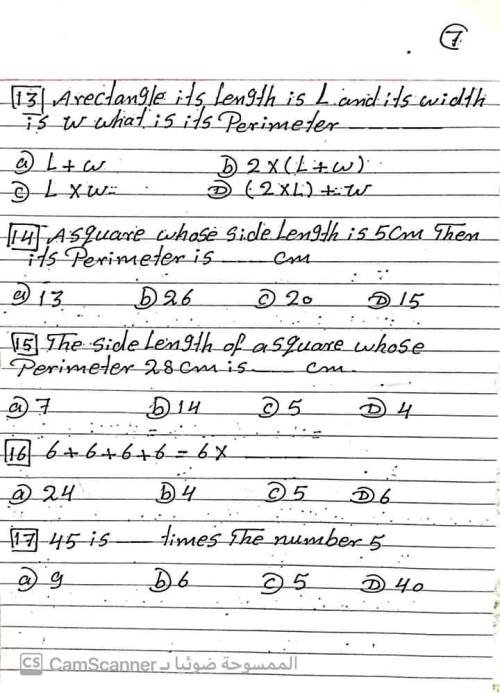 7
13 A rectangle its Length is L and its width
is w what is its Perimeter
a) L + w b) 2 x (L + w)
c) L x w D) (2 x L) + w
14 A square whose side Length is 5 cm Then
its Perimeter is ____ cm
a) 13 b) 26 c) 20 D) 15
15 The side Length of a square whose
Perimeter 28 cm is ____ cm
a) 7 b) 14 c) 5 D) 4
16 6 + 6 + 6 + 6 = 6 x ____
a) 24 b) 4 c) 5 D) 6
17 45 is ____ times The number 5
a) 9 b) 6 c) 5 D) 40
CS CamScanner الممسوحة ضوئيا بـ